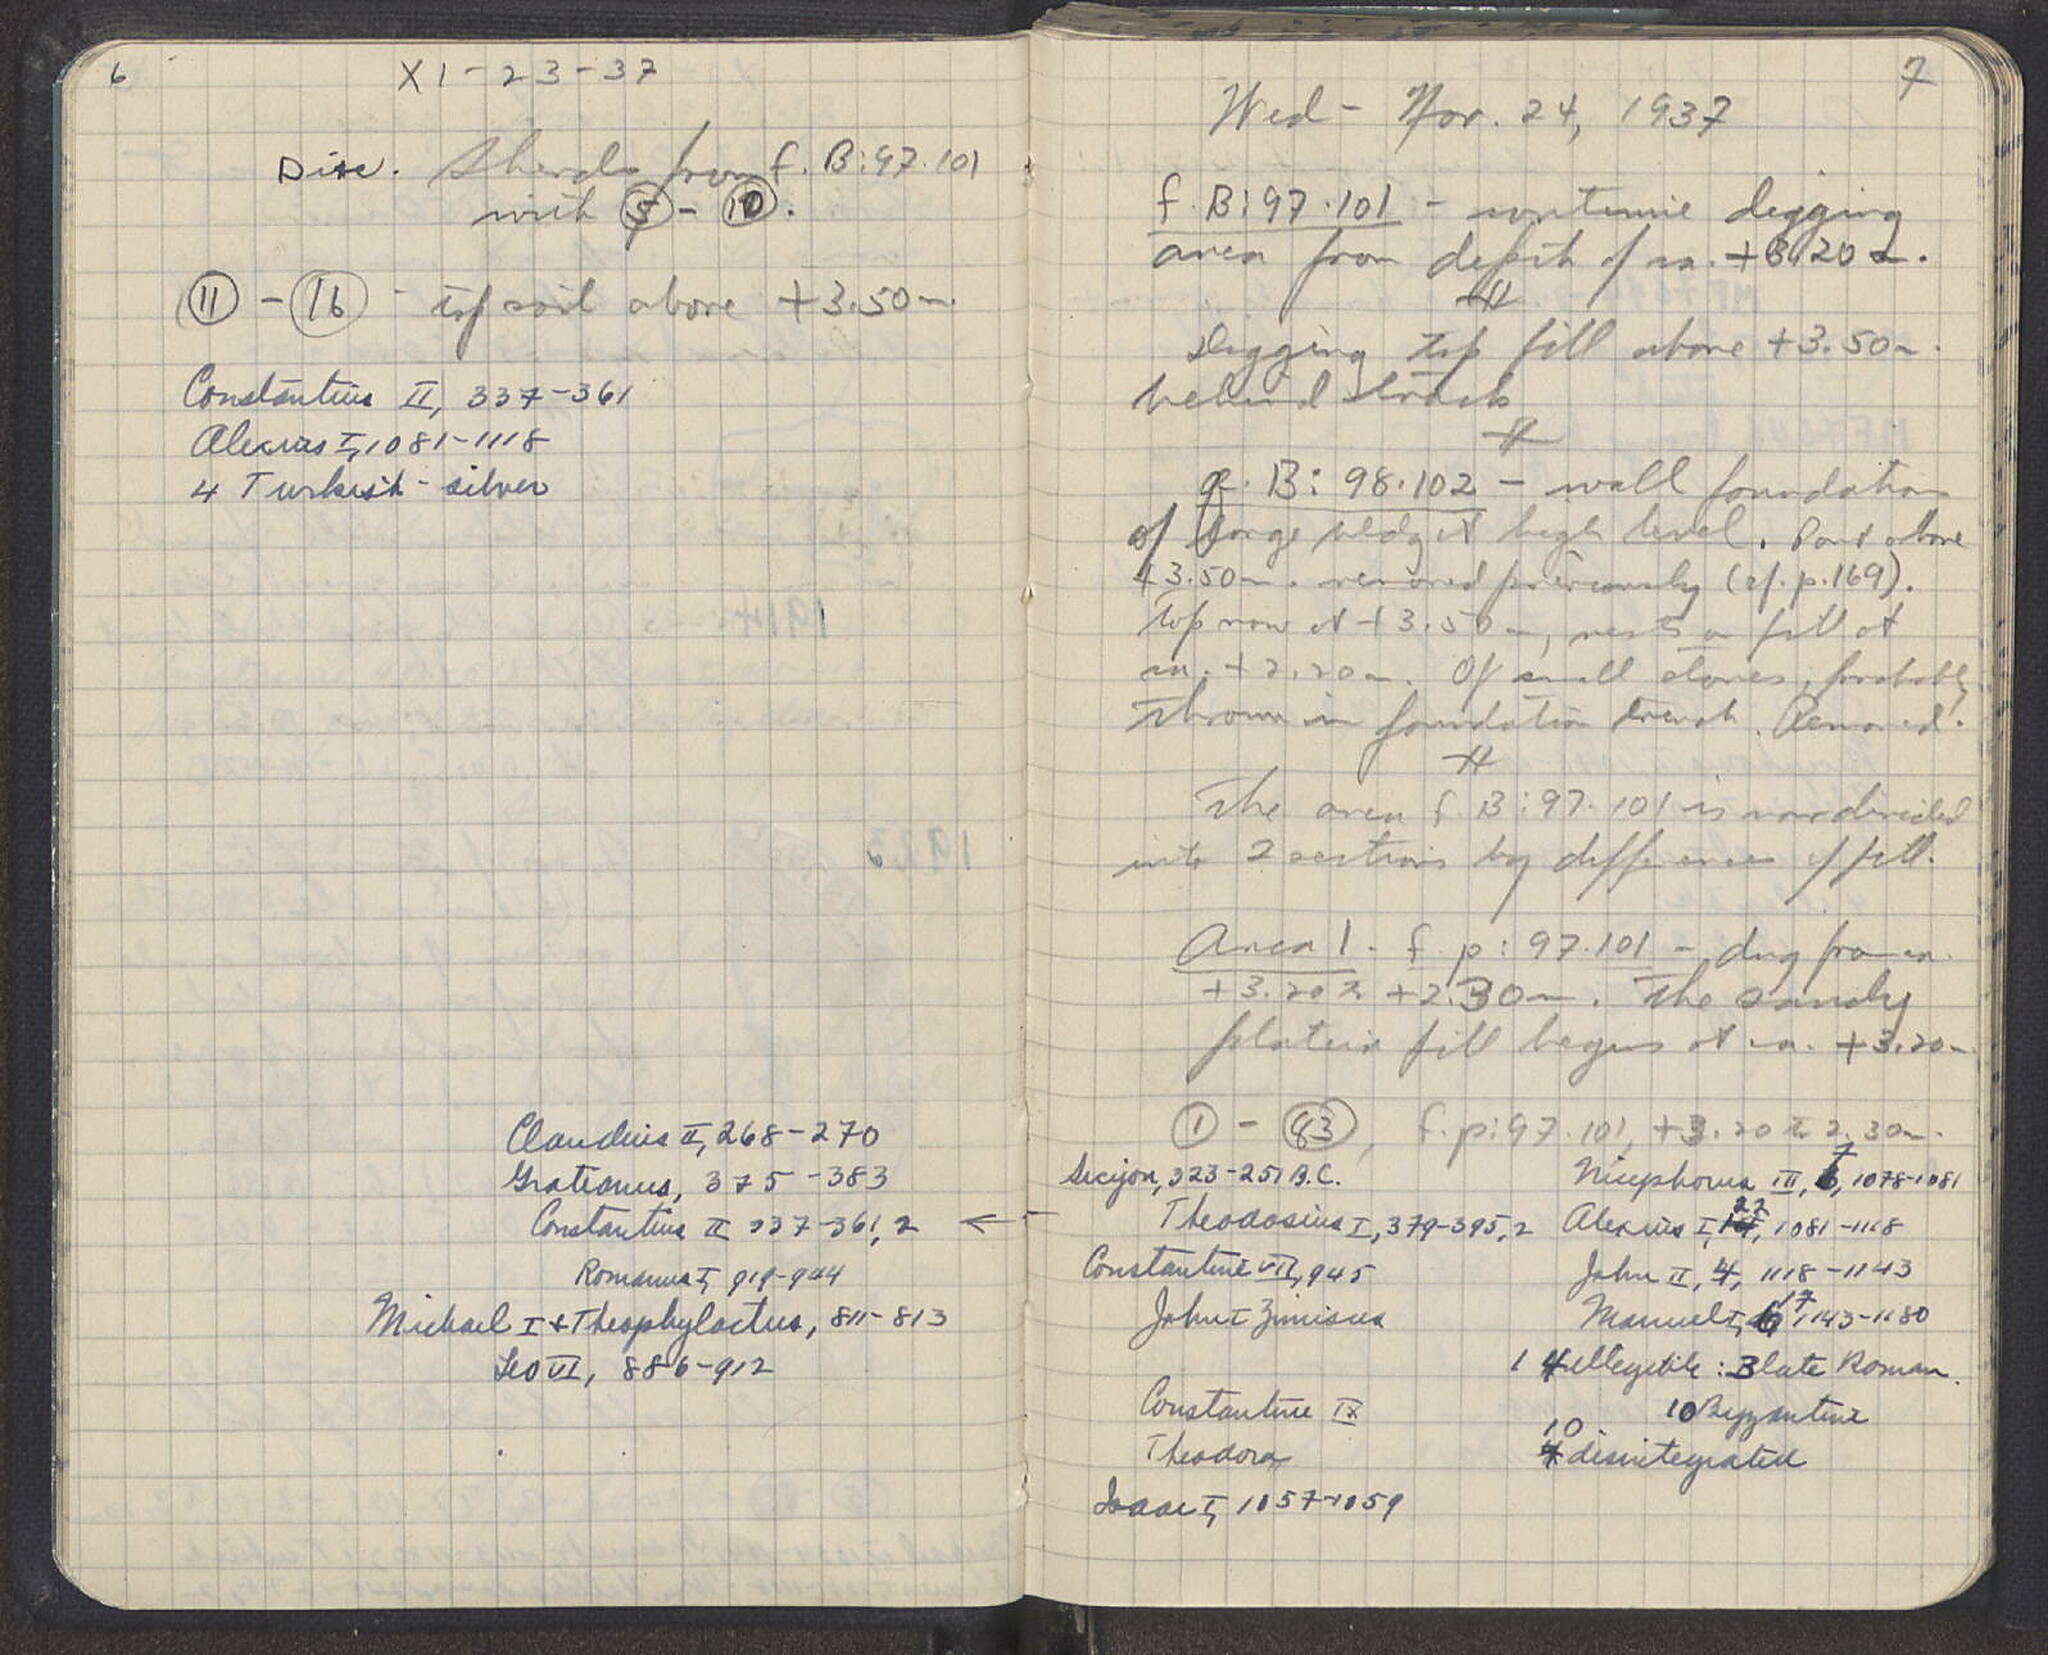 6
XI-23-37
Disc. Sherds from f. B:97.101
with (5) - (10).
(11) - (16) - top soil above +3.50m.
Constantius II, 337-361
Alexius I, 1081-1118
4 Turkish - silver
Claudius II, 268-270
Gratianus, 375-383
Constantius II 337-361, 2 ←
Romanus I, 919-944
Michael I + Theophylactus, 811-813
Leo VI, 886-912
7
Wed - Nov. 24, 1937
f. B:97.101 - continue digging
area from depth of ca. +3.20m.
Digging top fill above +3.50m.
behind track
q. B:98.102 - wall foundation
of large bldg at high level. Part above
+3.50m. removed previously (cf. p.169).
Top now at +3.50m, rests on fill at
ca. +2.20m. Of small stones, probably
thrown in foundation trench. Removed.
The area f. B:97.101 is now divided
into 2 sections by difference of fill.
Area 1 - f. p:97.101 - dug from ca.
+3.20 to +2.30m. The sandy
plateia fill begins at ca. +3.20m
(1) - (83), f. p:97.101, +3.20 to 2.30m.
Sicyon, 323-251 B.C.
Theodosius I, 379-395, 2
Constantine VII, 945
John I Zimisces
Constantine IX
Theodora
Isaac I, 1057-1059
Nicephorus III, 7, 1078-1081
Alexius I, 22, 1081-1118
John II, 4, 1118-1143
Manuel I, 17, 1143-1180
14 illegible: 3 late Roman.
10 Byzantine
10 disintegrated